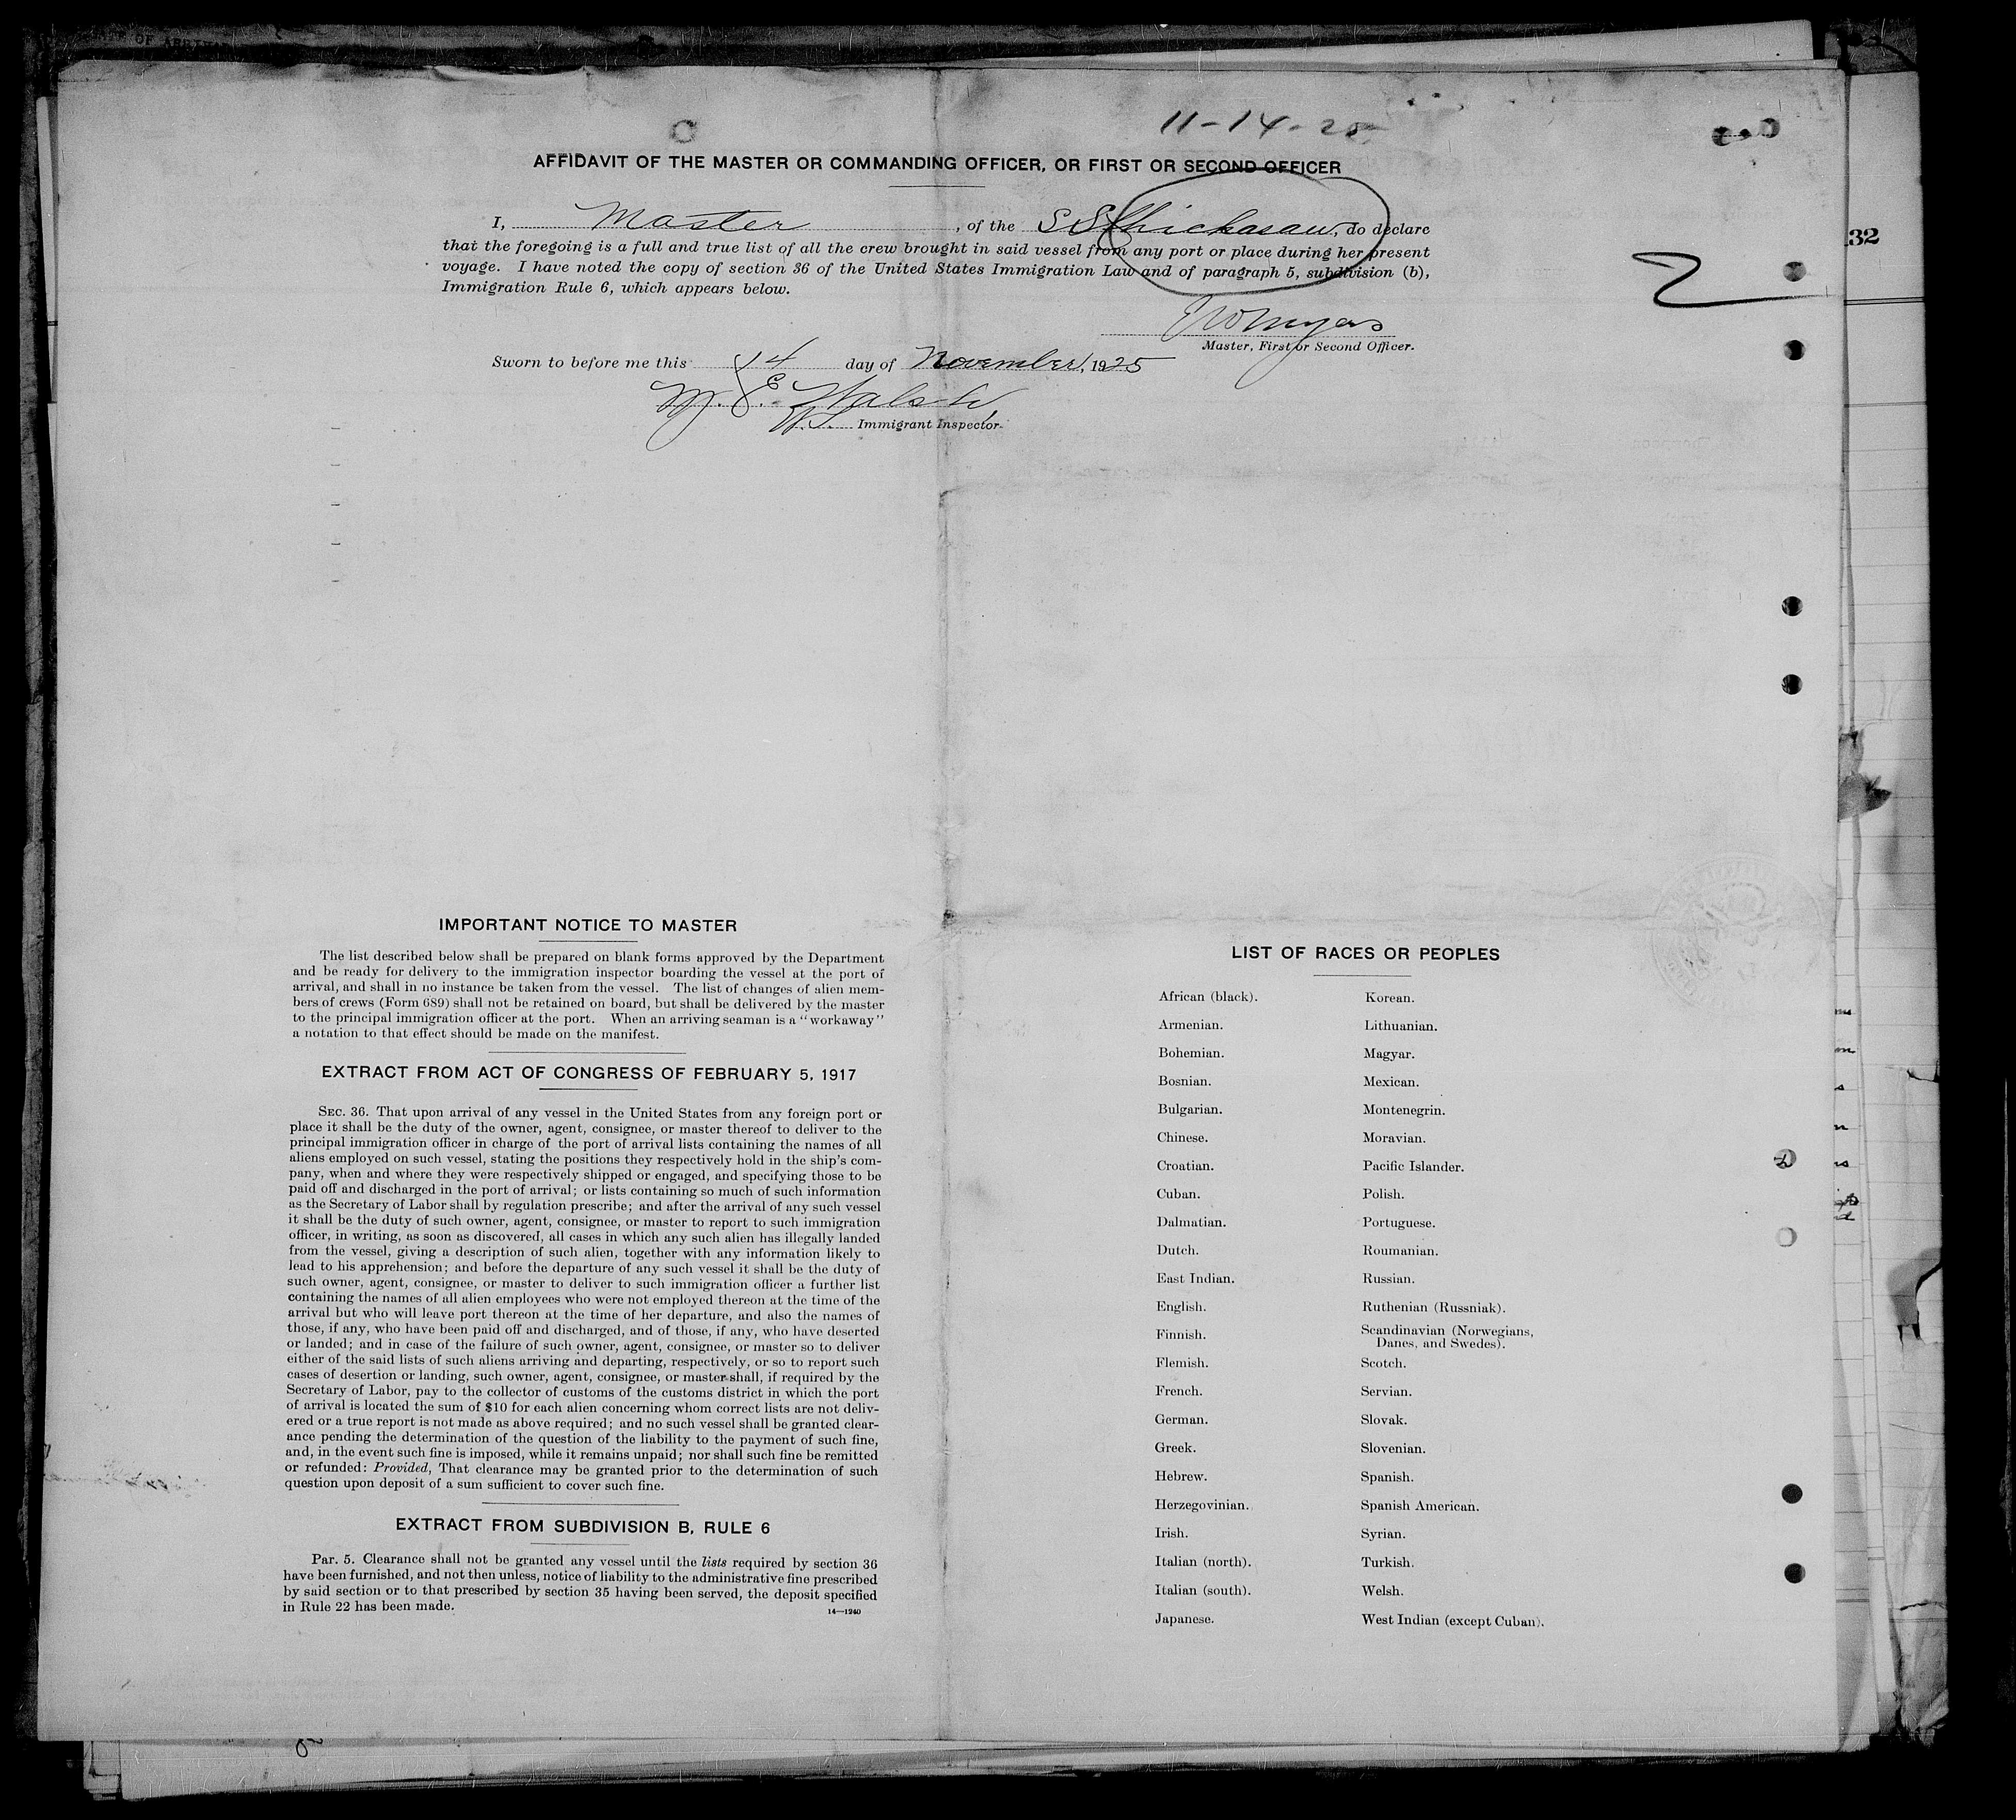 11-14-25
AFFIDAVIT OF THE MASTER OR COMMANDING OFFICER, OR FIRST OR SECOND OFFICER
I, Master, of the SS Chickasaw, do declare
that the foregoing is a full and true list of all the crew brought in said vessel from any port or place during her present
voyage. I have noted the copy of section 36 of the United States Immigration Law and of paragraph 5, subdivision (b),
Immigration Rule 6, which appears below.
Myers
Master, First or Second Officer.
Sworn to before me this 14 day of November, 1925
M. E. Walsh,
Immigrant Inspector.
32
IMPORTANT NOTICE TO MASTER
The list described below shall be prepared on blank forms approved by the Department
and be ready for delivery to the immigration inspector boarding the vessel at the port of
arrival, and shall in no instance be taken from the vessel. The list of changes of alien mem-
bers of crews (Form 689) shall not be retained on board, but shall be delivered by the master
to the principal immigration officer at the port. When an arriving seaman is a "workaway"
a notation to that effect should be made on the manifest.
EXTRACT FROM ACT OF CONGRESS OF FEBRUARY 5, 1917
SEC. 36. That upon arrival of any vessel in the United States from any foreign port or
place it shall be the duty of the owner, agent, consignee, or master thereof to deliver to the
principal immigration officer in charge of the port of arrival lists containing the names of all
aliens employed on such vessel, stating the positions they respectively hold in the ship's com-
pany, when and where they were respectively shipped or engaged, and specifying those to be
paid off and discharged in the port of arrival; or lists containing so much of such information
as the Secretary of Labor shall by regulation prescribe; and after the arrival of any such vessel
it shall be the duty of such owner, agent, consignee, or master to report to such immigration
officer, in writing, as soon as discovered, all cases in which any such alien has illegally landed
from the vessel, giving a description of such alien, together with any information likely to
lead to his apprehension; and before the departure of any such vessel it shall be the duty of
such owner, agent, consignee, or master to deliver to such immigration officer a further list
containing the names of all alien employees who were not employed thereon at the time of the
arrival but who will leave port thereon at the time of her departure, and also the names of
those, if any, who have been paid off and discharged, and of those, if any, who have deserted
or landed; and in case of the failure of such owner, agent, consignee, or master so to deliver
either of the said lists of such aliens arriving and departing, respectively, or so to report such
cases of desertion or landing, such owner, agent, consignee, or master shall, if required by the
Secretary of Labor, pay to the collector of customs of the customs district in which the port
of arrival is located the sum of $10 for each alien concerning whom correct lists are not deliv-
ered or a true report is not made as above required; and no such vessel shall be granted clear-
ance pending the determination of the question of the liability to the payment of such fine,
and, in the event such fine is imposed, while it remains unpaid; nor shall such fine be remitted
or refunded: Provided, That clearance may be granted prior to the determination of such
question upon deposit of a sum sufficient to cover such fine.
EXTRACT FROM SUBDIVISION B, RULE 6
Par. 5. Clearance shall not be granted any vessel until the lists required by section 36
have been furnished, and not then unless, notice of liability to the administrative fine prescribed
by said section or to that prescribed by section 35 having been served, the deposit specified
in Rule 22 has been made.
14—1240
LIST OF RACES OR PEOPLES
African (black). Korean.
Armenian. Lithuanian.
Bohemian. Magyar.
Bosnian. Mexican.
Bulgarian. Montenegrin.
Chinese. Moravian.
Croatian. Pacific Islander.
Cuban. Polish.
Dalmatian. Portuguese.
Dutch. Roumanian.
East Indian. Russian.
English. Ruthenian (Russniak).
Finnish. Scandinavian (Norwegians,
Danes, and Swedes).
Flemish. Scotch.
French. Servian.
German. Slovak.
Greek. Slovenian.
Hebrew. Spanish.
Herzegovinian. Spanish American.
Irish. Syrian.
Italian (north). Turkish.
Italian (south). Welsh.
Japanese. West Indian (except Cuban).